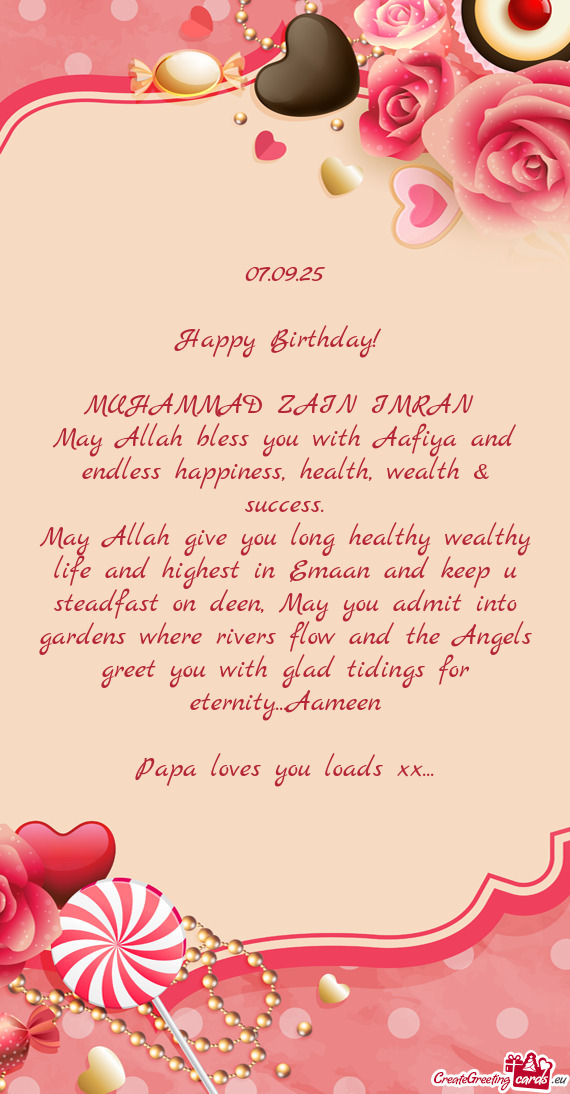 07.09.25
Happy Birthday!
MUHAMMAD ZAIN IMRAN
May Allah bless you with Aafiya and
endless happiness, health, wealth &
success.
May Allah give you long healthy wealthy
life and highest in Emaan and keep u
steadfast on deen, May you admit into
gardens where rivers flow and the Angels
greet you with glad tidings for
eternity...Aameen
Papa loves you loads xx...
CreateGreetingcards.eu